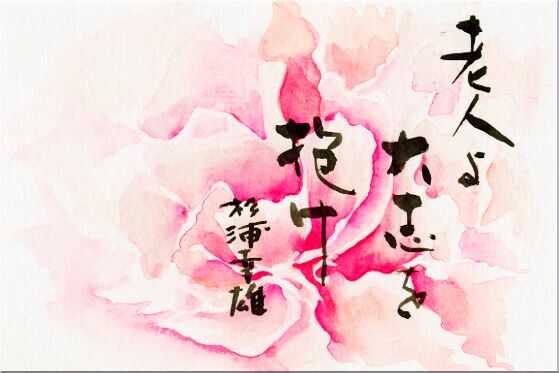 老人よ
大志を
抱け
杉浦幸雄